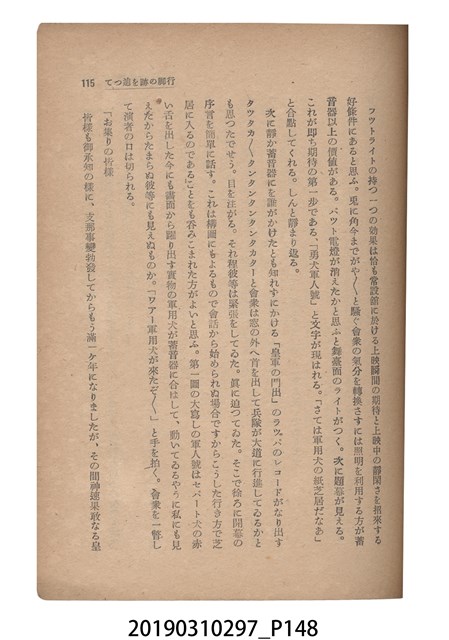 115　てつ追を跡の脚行
フツトライトの持つ一つの効果は恰も常設館に於ける上映瞬間の期待と上映中の靜閑さを招來する
好條件にあると思ふ。兎に角今までがや〱と騷ぐ會衆の氣分を轉換さすには照明を利用する方が蓄
音器以上の價値がある。パツト電燈が消えたかと思ふと舞臺面のライトがつく。次に題幕が見える。
これが卽ち期待の第一步である、「勇犬軍人號」と文字が現はれる。「さては軍用犬の紙芝居だなあ」
と合點してくれる。しんと靜まり返る。
次に靜か蓄音器にを誰がかけたとも知れずにかける「皇軍の門出」のラツパのレコードがなり出す
タツタカ〱タンタンタンタンタカターと會衆は窓の外へ首を出して兵隊が大道に行進してゐるかと
も思つたでせう。目を注がる。それ程彼等は緊張をしてゐた。眞に迫つてゐた。そこで徐ろに開幕の
序言を簡單に話す。これは構圖にもよるもので會話から始められぬ場合ですからこうした行き方で芝
居に入るのであることをも呑みこまれた方がよいと思ふ。第一圖の大寫しの軍人號はセパート犬の赤
い舌を出した今にも畵面から躍り出す實物の軍用犬が蓄音器に合はして、動いてゐるやうに私にも見
えたからたまらぬ彼等にも見えぬものか。「ワアー軍用犬が來たぞ〱」と手を拍く。會衆を一瞥し
て演者の口は切られる。
「お集りの皆樣
皆樣も御承知の樣に、支那事變勃發してからもう滿一ケ年になりましたが、その間神速果敢なる皇
20190310297_P148